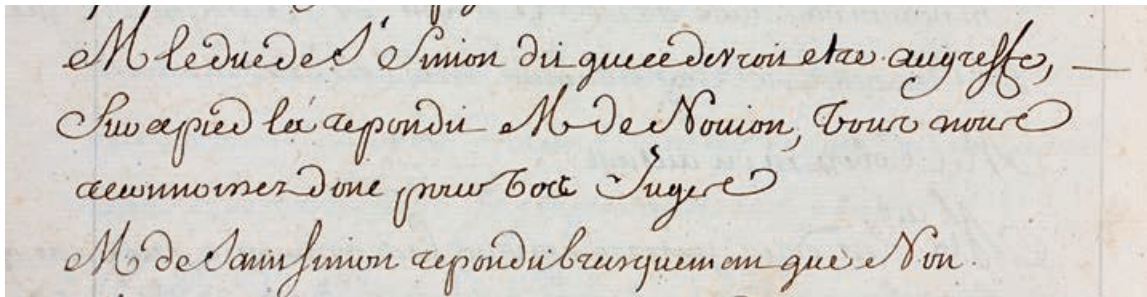 M le duc de St Simon dit que ce devroit etre au greffe,
Sur ce pied là repondit M de Novion, vous nous
reconnoissez donc pour vos Juges
M de Saint simon repondit brusquement que Non